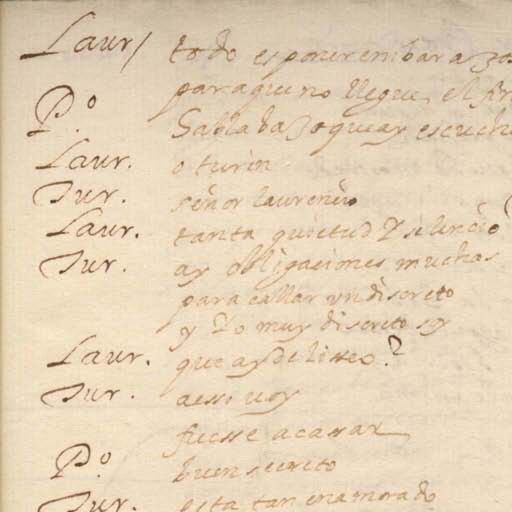 Laur/ todo es poner embarazos
para que no llegue el fin
P.º habla bazo que ay escucha
Laur. o turin
Tur. señor laurencio
Laur. tanta quietud Y silencio
Tur. ay obligaciones muchas
para callar yn discreto
y Yo muy discreto soy
Laur. que ay de lisseo?
Tur. a esso voy
fuesse a cassar
P.º buen secreto
Tur. esta tan enamorado